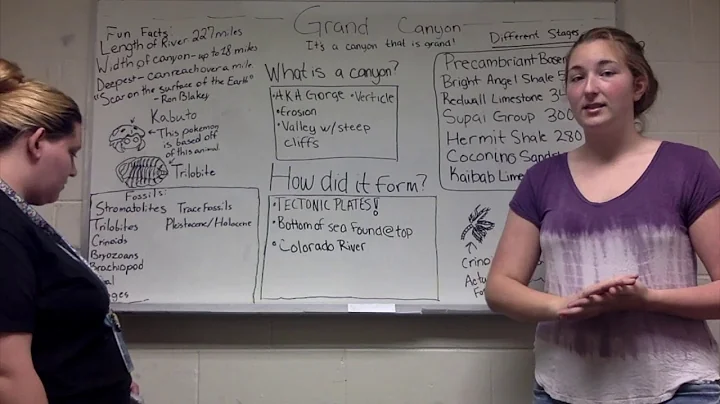 Grand Canyon
It's a canyon that is grand!
Fun Facts:
Length of River 227 miles
Width of canyon - up to 18 miles
Deepest - can reach over a mile
"Scar on the surface of the Earth"
- Ron Blakey
Kabuto
This pokemon
is based off
of this animal.
Trilobite
Fossils:
Stromatolites Trace Fossils
Trilobites Pleistocene/Holocene
Crinoids
Bryozoans
Brachiopod
What is a canyon?
•AKA Gorge •Verticle
•Erosion
•Valley w/ steep
cliffs
How did it form?
•TECTONIC PLATES!
•Bottom of sea found @ top
•Colorado River
Different Stages
Precambriant
Bright Angel Shale
Redwall Limestone
Supai Group 300
Hermit Shale 280
Coconino
Kaibab